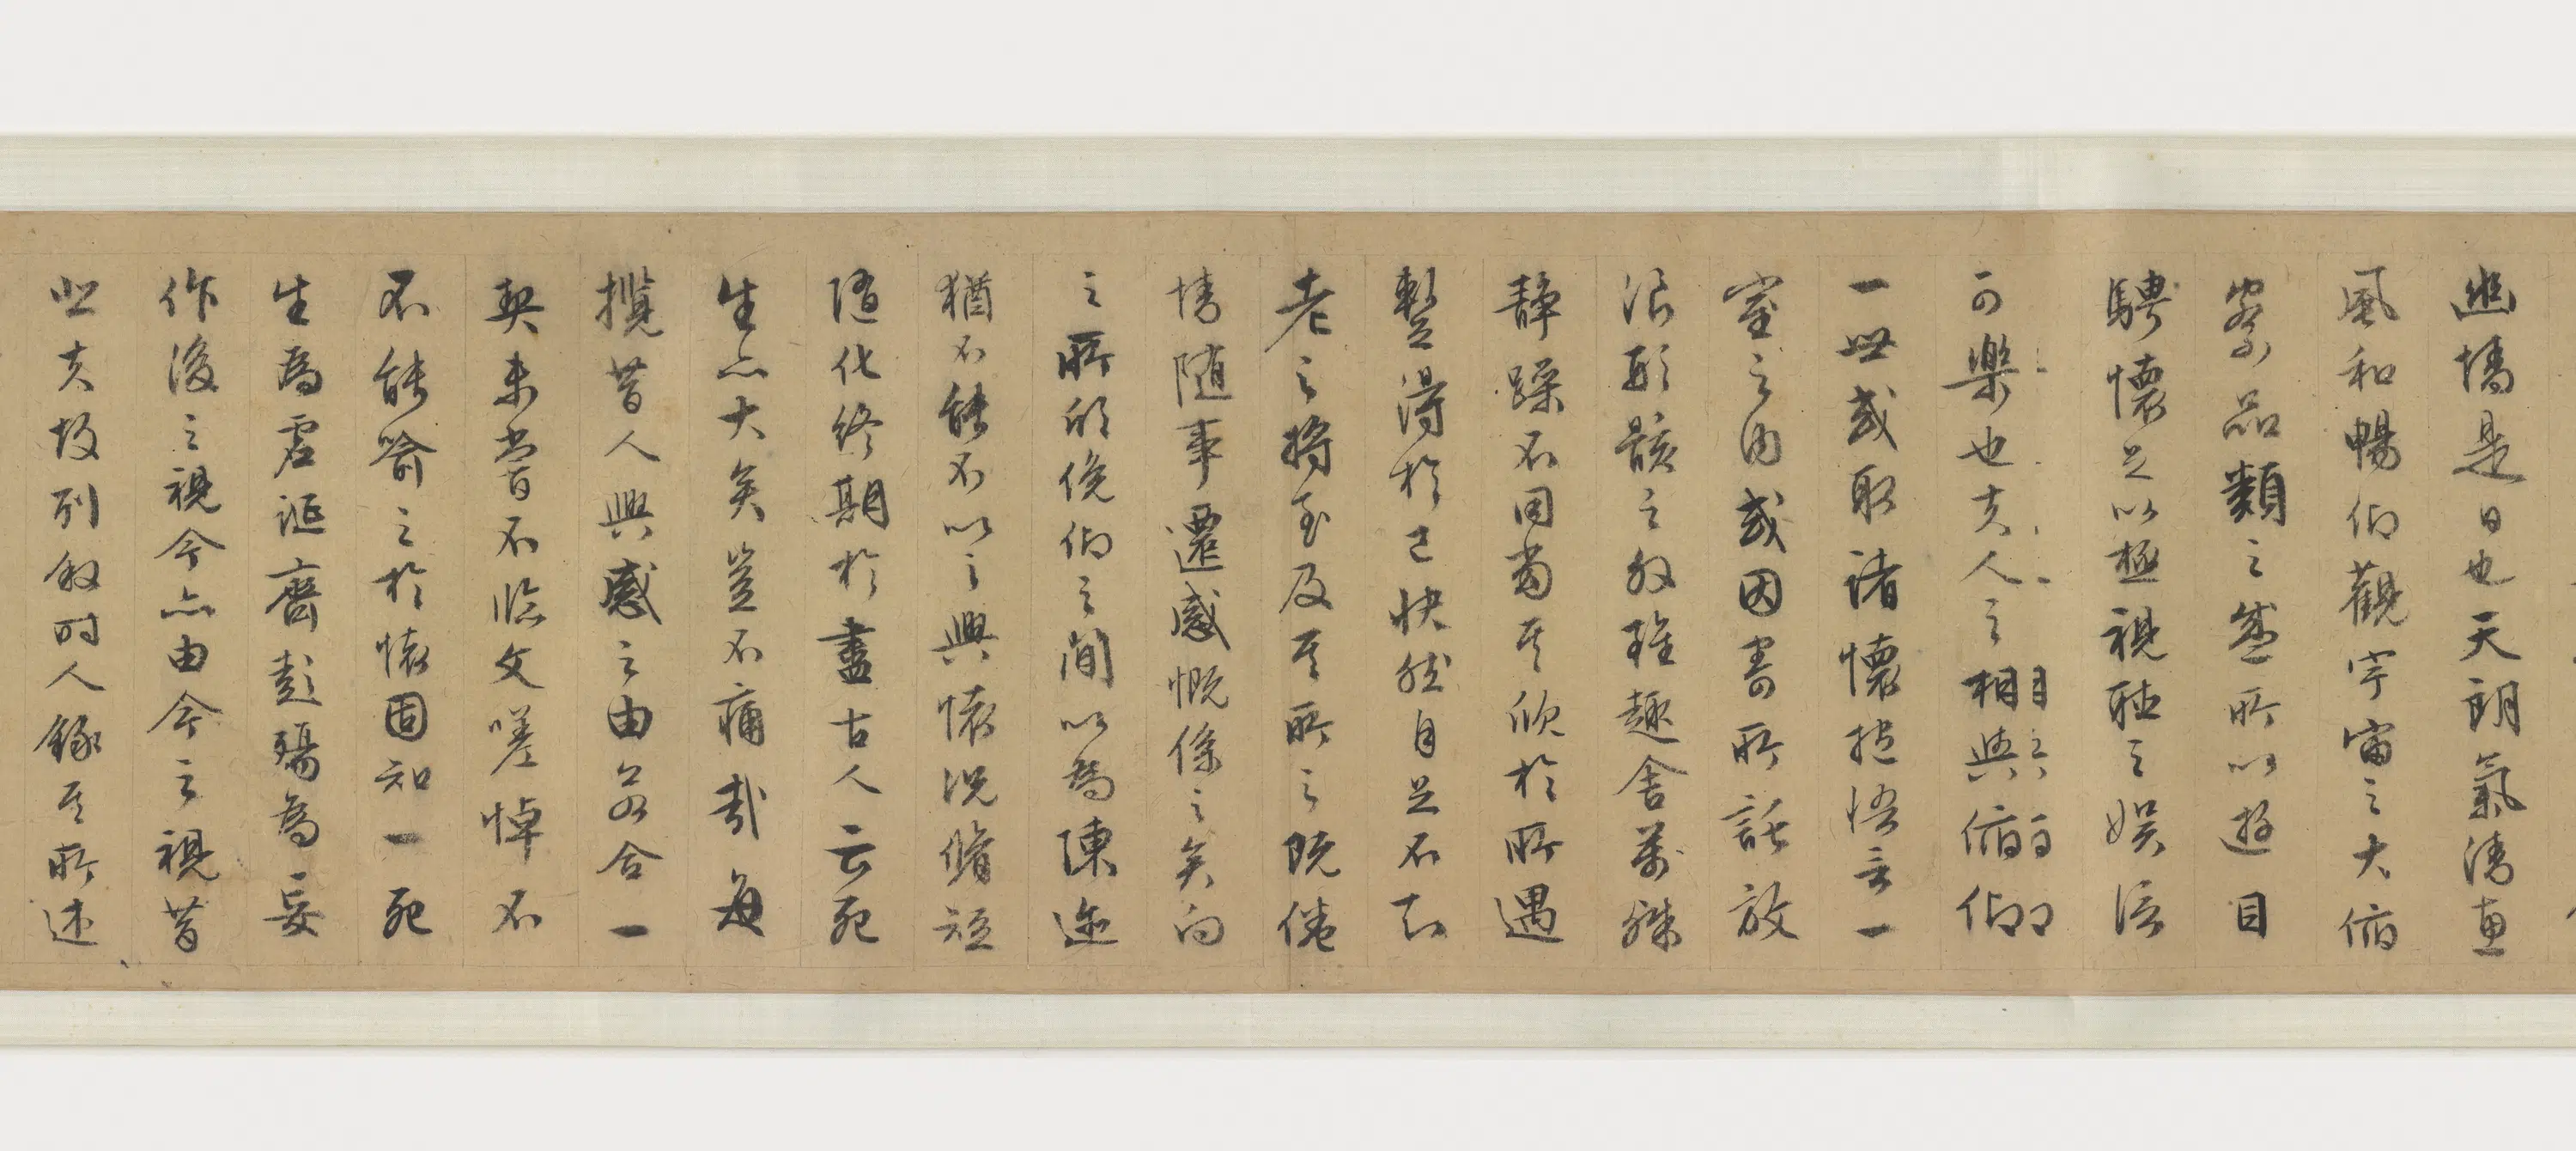 幽情是日也天朗氣清惠
風和暢仰觀宇宙之大俯
察品類之盛所以遊目
騁懷足以極視聽之娛信
可樂也夫人之相與俯仰
一世或取諸懷抱悟言一
室之內或因寄所託放
浪形骸之外雖趣舍萬殊
靜躁不同當其欣於所遇
暫得於己快然自足不知
老之將至及其所之既倦
情隨事遷感慨係之矣向
之所欣俛仰之間以為陳迹
猶不能不以之興懷況脩短
隨化終期於盡古人云死
生亦大矣豈不痛哉每
攬昔人興感之由若合一
契未嘗不臨文嗟悼不
不能喻之於懷固知一死
生為虛誕齊彭殤為妄
作後之視今亦由今之視昔
悲夫故列敘時人錄其所述